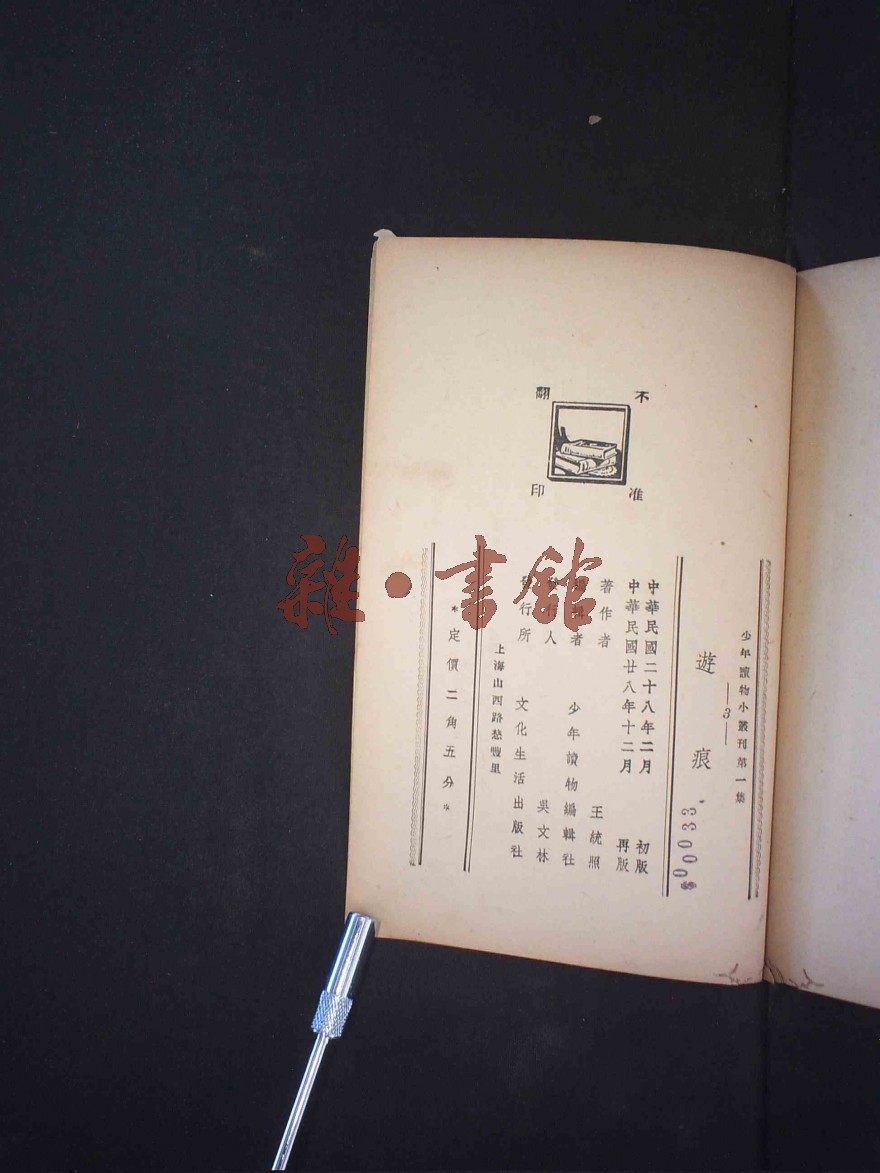 不准翻印
少年讀物小叢刊第一集
—3—
遊痕
中華民國二十八年二月 初版
中華民國廿八年十二月 再版
著作者 王統照
編輯者 少年讀物編輯社
發行人 吳文林
發行所 文化生活出版社
上海山西路慈豐里
*定價二角五分*
雜·書館